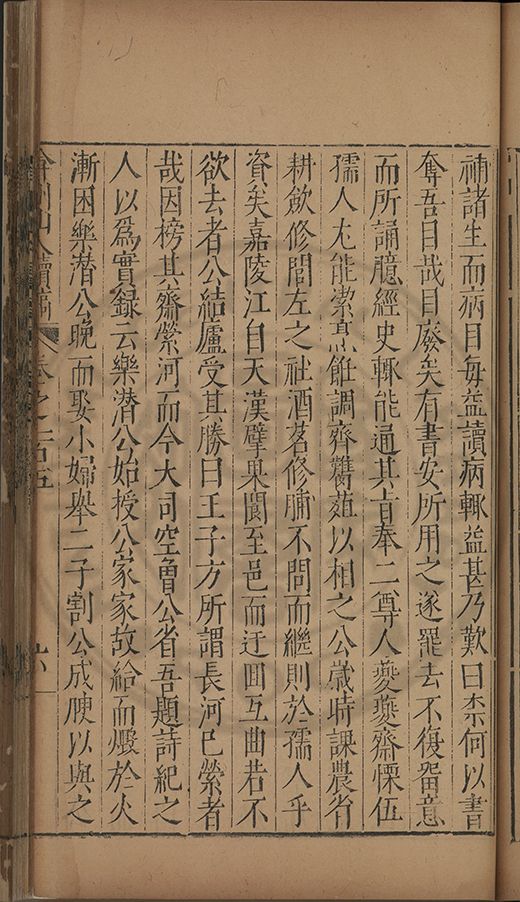 補諸生而病目每益讀病輒益甚乃歎曰柰何以書
奪吾目哉目廢矣有書安所用之遂罷去不復留意
而所誦臆經史輒能通其旨奉二尊人夔夔齋慄伍
孺人尤能潔烹飪調齊蘁以相之公歲時課農省
耕飲修閭左之社酒茗修脯不問而繼則於孺人乎
資矣嘉陵江自天漢擘果閬至邑而迂囬互曲若不
欲去者公結廬受其勝曰王子方所謂長河已縈者
哉因榜其齋縈河而今大司空曾公省吾題詩紀之
人以爲實録云樂潛公始授公家家故給而燬於火
漸困樂潛公晚而娶小婦舉二子割公成腴以與之
弇州山人續稿 卷之一百五 六